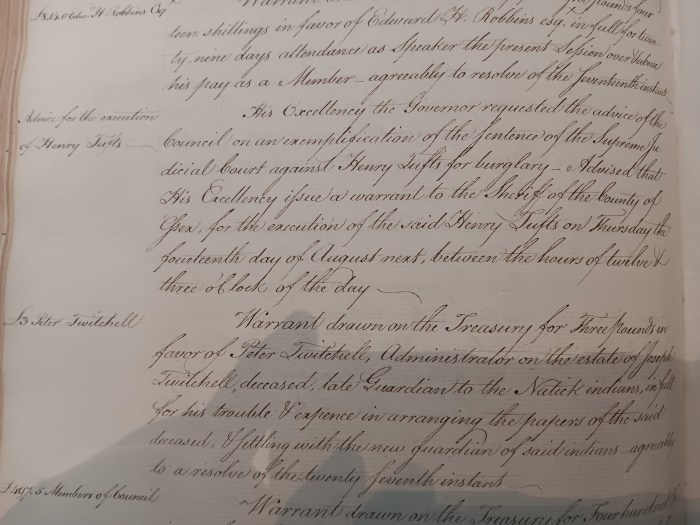 £8.14.0 Edw. H. Robbins Esq
teen shillings in favor of Edward H. Robbins esq. in full for twen
ty nine days attendance as Speaker the present Session over & above
his pay as a Member - agreeably to resolve of the Seventeenth instant
Advice for the execution
of Henry Tufts
His Excellency the Governor requested the advice of the
Council on an exemplification of the Sentence of the Supreme Ju
dicial Court against Henry Tufts for burglary - Advised that
His Excellency issue a warrant to the Sheriff of the County of
Essex, for the execution of the said Henry Tufts on Thursday the
fourteenth day of August next, between the hours of twelve &
three o'Clock of the day
£3 Peter Twitchell
Warrant drawn on the Treasury for Three pounds in
favor of Peter Twitchell, Administrator on the estate of Joseph
Twitchell, deceased, late Guardian to the Natick indians, in full
for his trouble & expence in arranging the papers of the said
deceased, & settling with the new guardian of said indians - agreeably
to a resolve of the twenty seventh instant
£497.5 Members of Council
Warrant drawn on the Treasury for Four hundred &